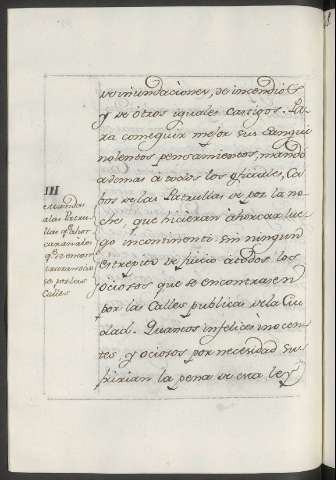 vo inundaciones, de incendios
y de otros iguales castigos. Pa-
ra conseguir mejor sus sangui
nolentos pensamientos, mandó
ademas á todos los oficiales, Ca-
bos de las Patrullas de por la no-
che que hicieran ahorcar lue-
go incontinenti sin ningun
estrepito de juicio á todos los
ociosos que se encontrasen
por las Calles publicas de la Ciu
dad. Quantos infelices inocen
tes, y ociosos por necesidad su-
fririan la pena de esa ley
III
a las Patru
llas qe. ahor
caran a los
qe. se encon
por las
Calles